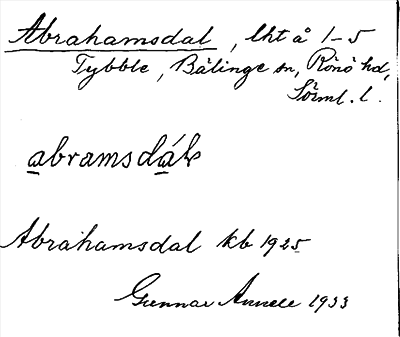 Abrahamsdal, lht å 1-5
Tybble, Bälinge sn, Rönö hd,
Sörml. l.
abramsdáḷ
Abrahamsdal kb 1925
Gunnar 1933